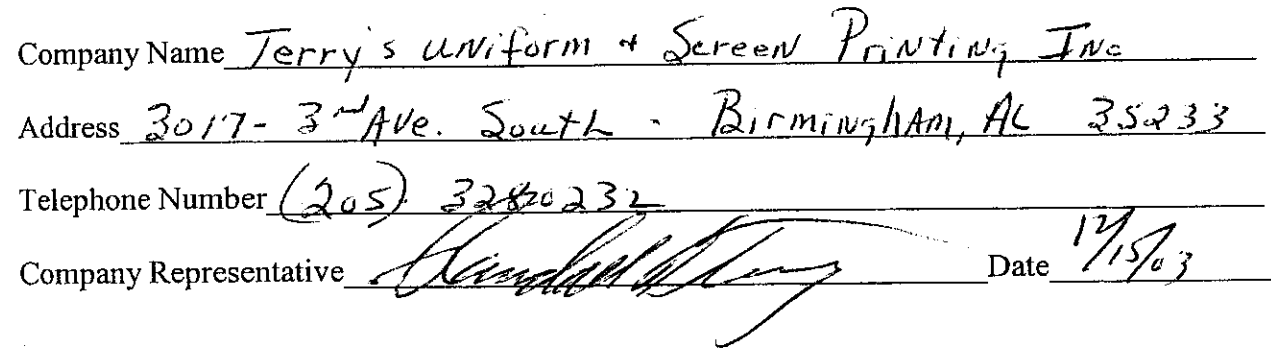 Company Name Terry's Uniform & Screen Printing Inc
Address 3017- 3rd Ave. South - Birmingham, AL 35233
Telephone Number (205) 3280232
Company Representative Date 12/15/03